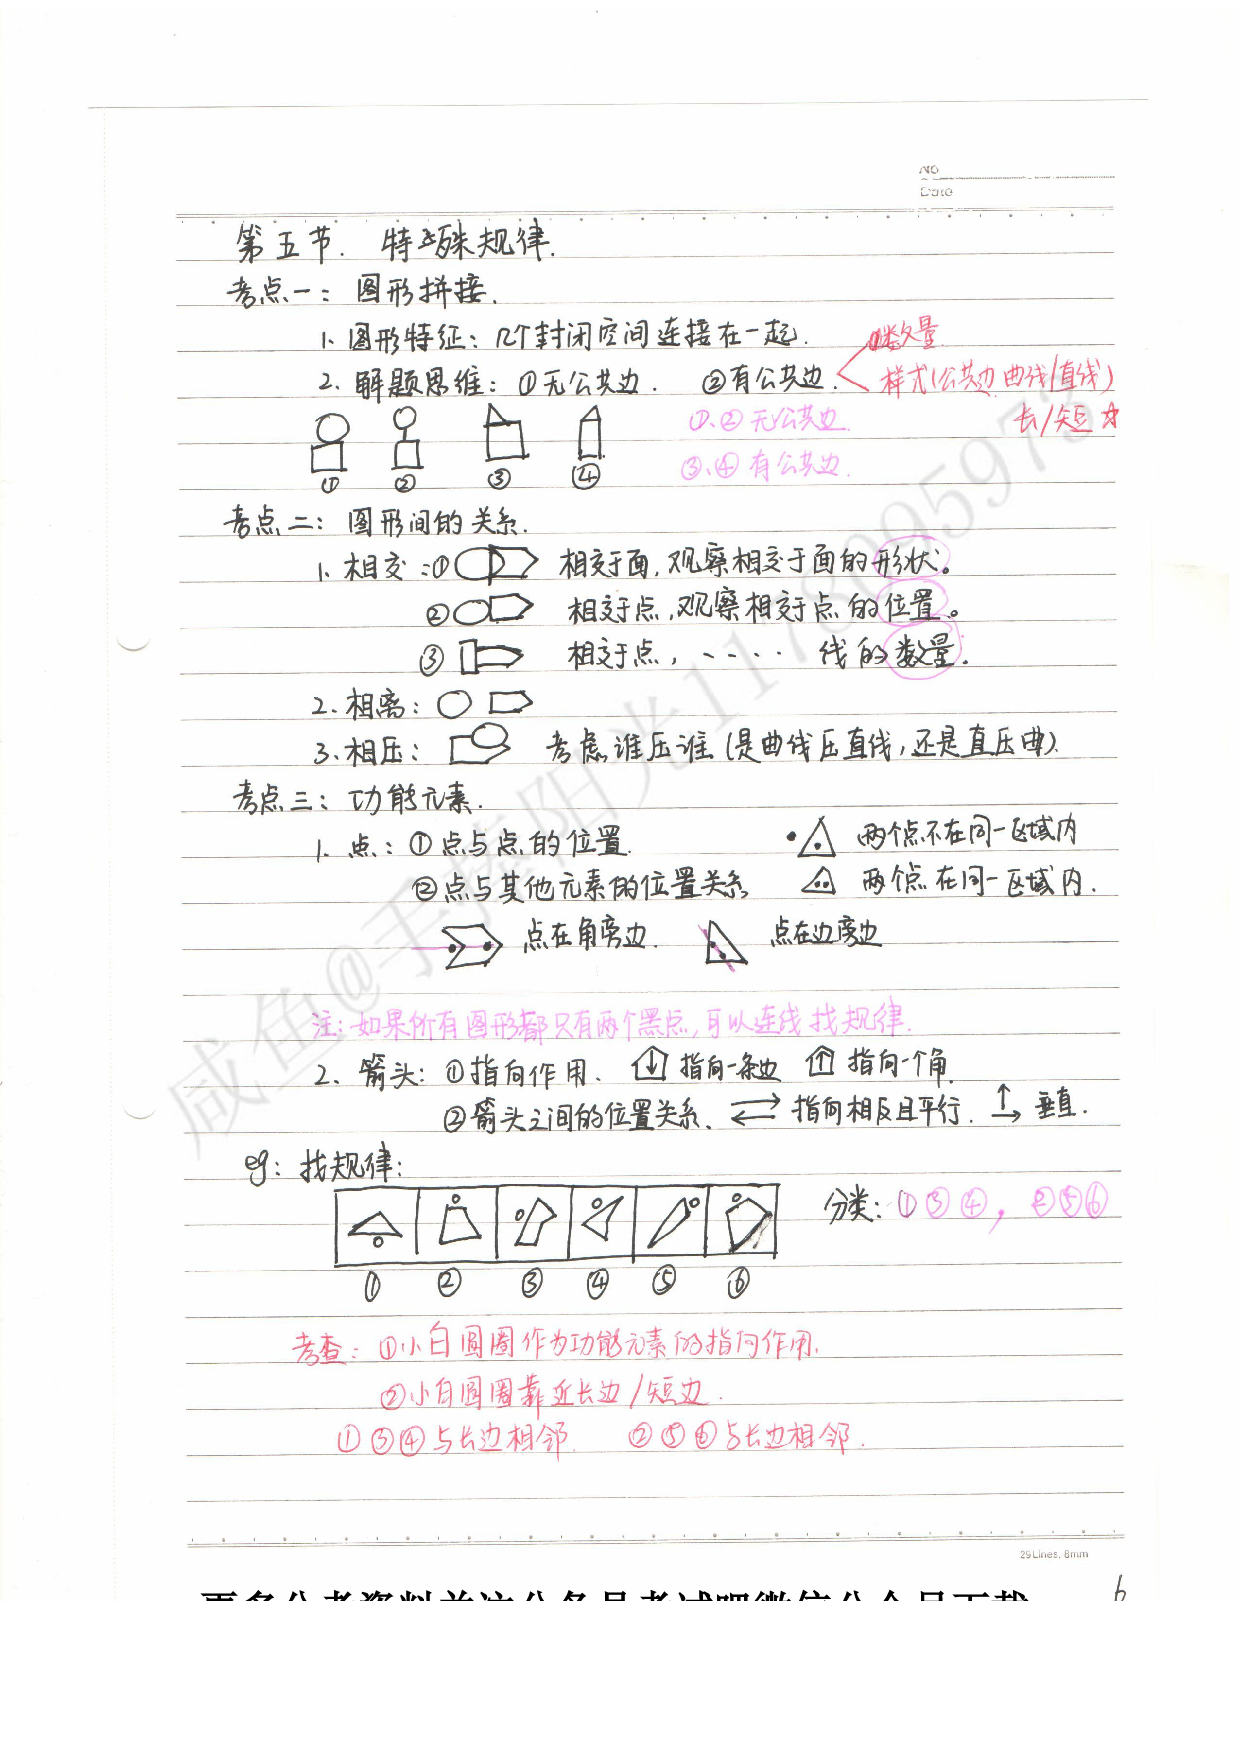 NO
Date
第五节. 特殊规律.
考点一: 图形拼接.
1. 图形特征: 几个封闭空间连接在一起. ①数量
2. 解题思维: ①无公共边. ②有公共边. 样式(公共边 曲线/直线)
①、②无公共边. 长/短 ☆
③、④有公共边.
① ② ③ ④
考点二: 图形间的关系.
1. 相交: ① 相交于面, 观察相交于面的形状。
② 相交于点, 观察相交于点的位置。
③ 相交于点, 、---- 线的数量.
2. 相离:
3. 相压: 考虑谁压谁 (是曲线压直线, 还是直压曲).
考点三: 功能元素.
1. 点: ①点与点的位置. 两个点不在同一区域内
②点与其他元素的位置关系 两个点在同一区域内.
点在角旁边. 点在边旁边
注: 如果所有图形都只有两个黑点, 可以连线找规律.
2. 箭头: ①指向作用. 指向一条边 指向一个角.
②箭头之间的位置关系、 指向相反且平行. 垂直.
eg: 找规律:
分类: ①③④, ②⑤⑥
① ② ③ ④ ⑤ ⑥
考查: ①小白圆圈作为功能元素的指向作用.
②小白圆圈靠近长边/短边.
①③④与长边相邻. ②⑤⑥与长边相邻.
29Lines, 8mm
6
咸鱼@手捧阳光1178095973